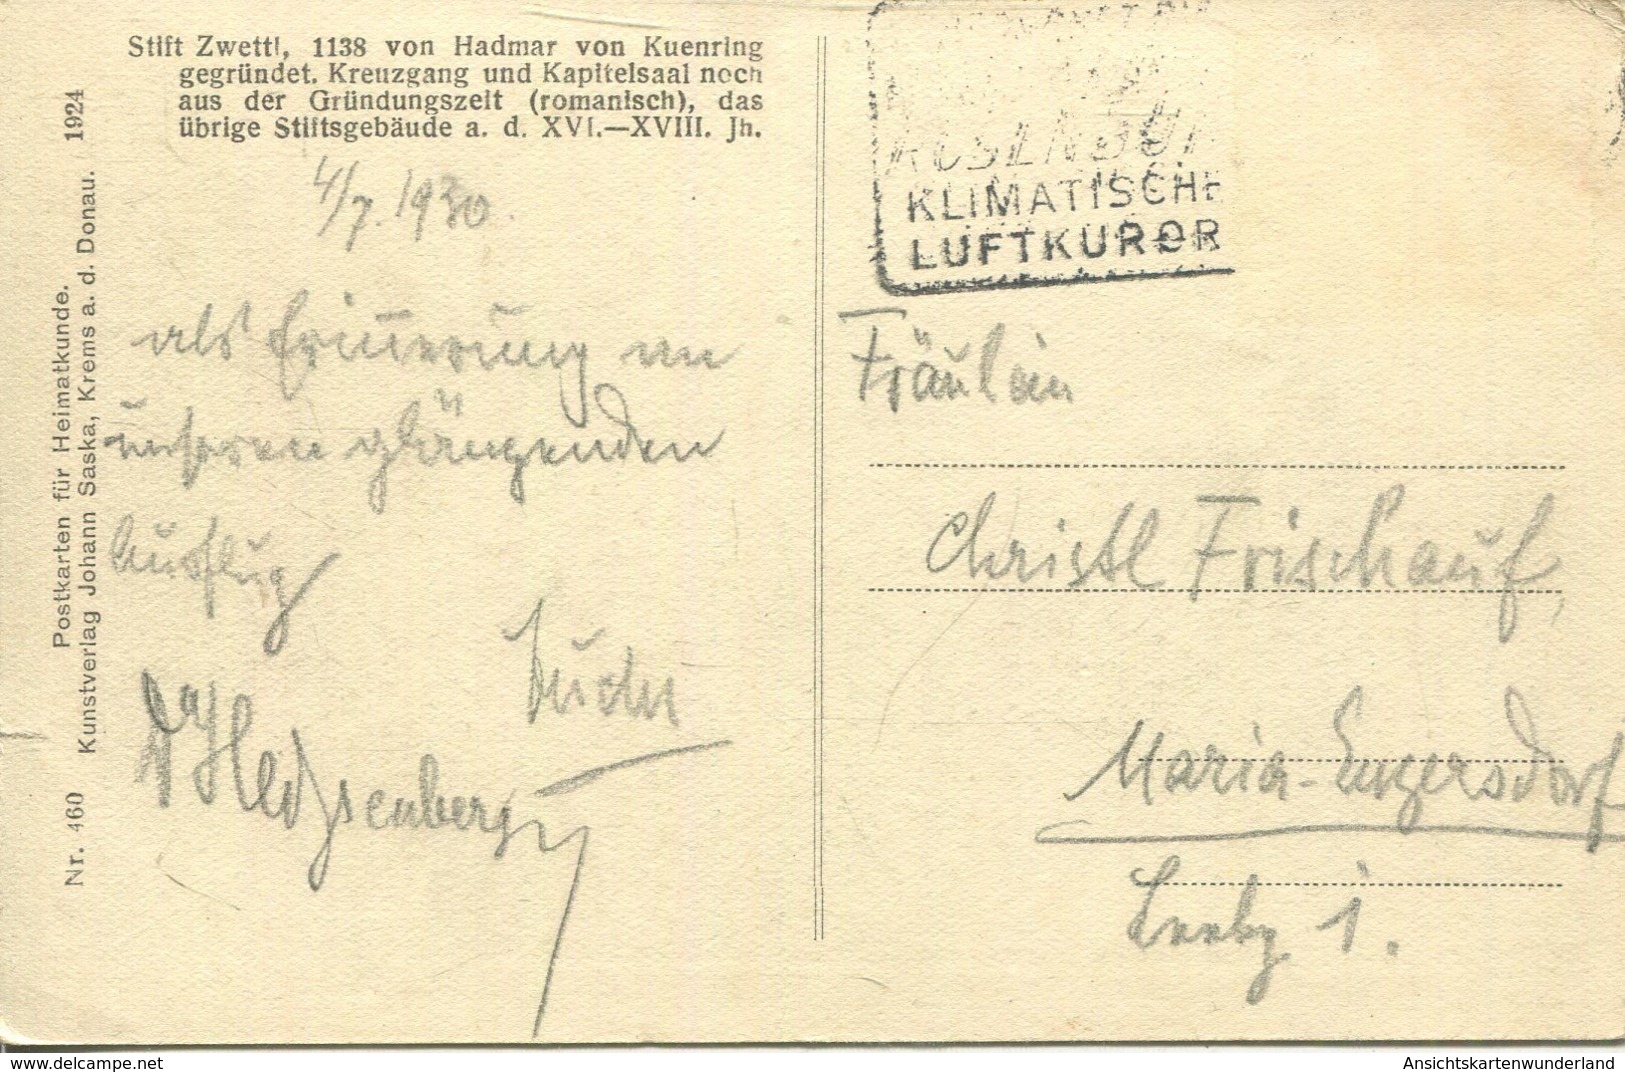 Stift Zwettl, 1138 von Hadmar von Kuenring
gegründet. Kreuzgang und Kapitelsaal noch
aus der Gründungszeit (romanisch), das
übrige Stiftsgebäude a. d. XVI.—XVIII. Jh.
4/7. 1930.
als Erinnerung an
unseren glänzenden
Ausflug
Nr. 460 Kunstverlag Johann Saska, Krems a. d. Donau. 1924
Postkarten für Heimatkunde.
KLIMATISCHE
LUFTKUROR
Fräulein
Christl Frischauf,
Maria-Enzersdorf
1.
delcampe.net
Ansichtskartenwunderland